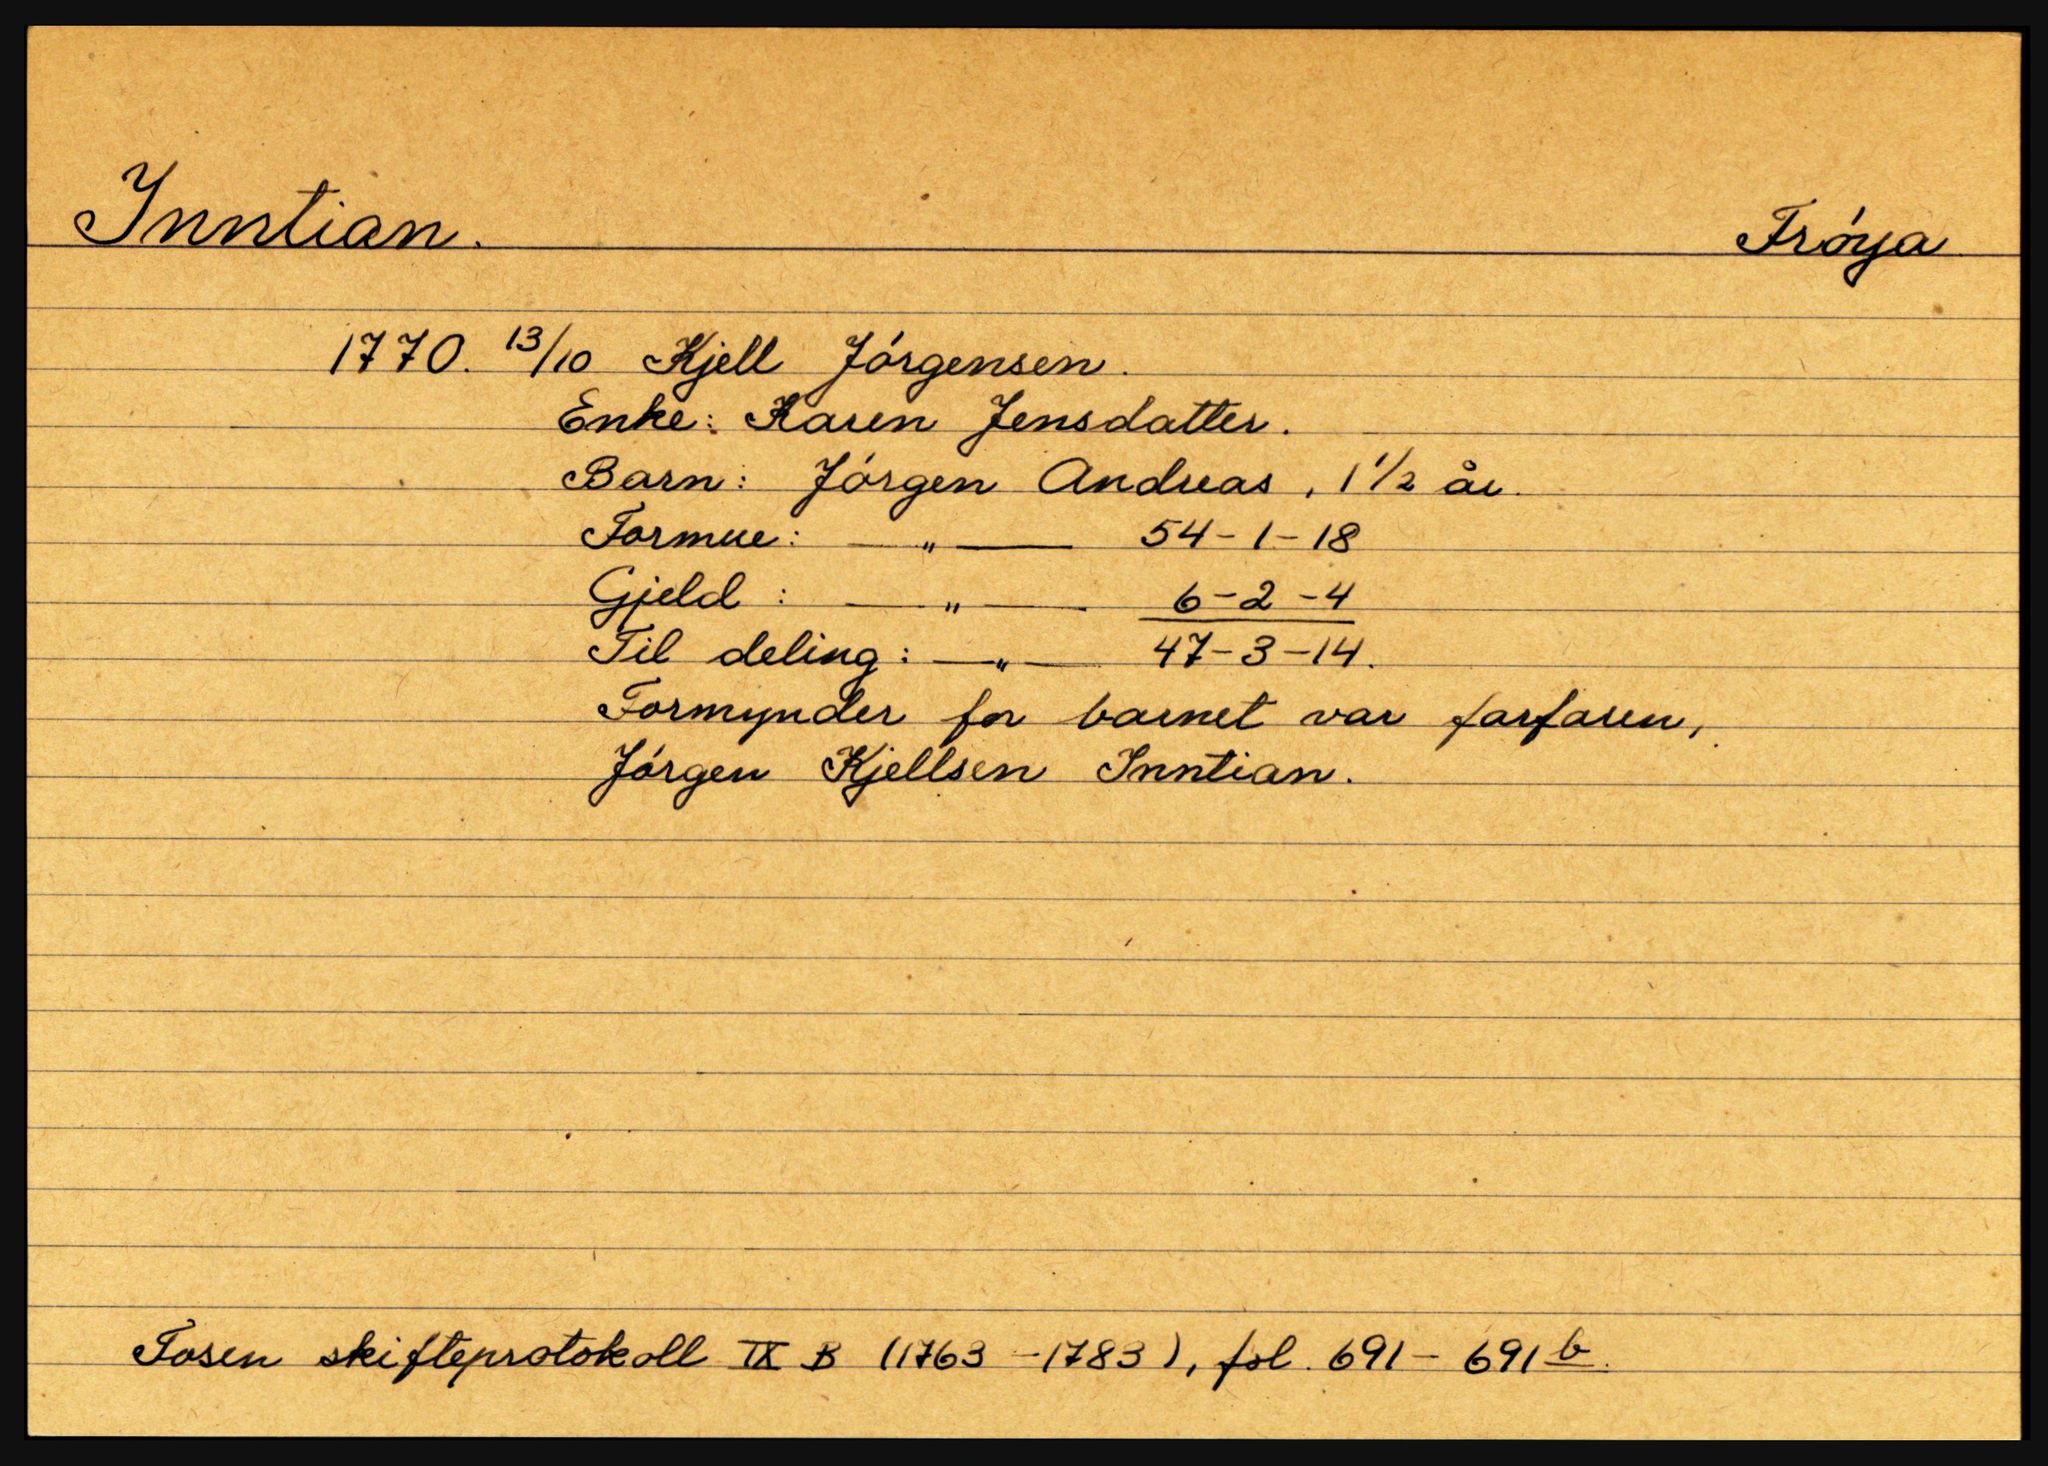 Inntian. Frøya
1770. 13/10 Kjell Jørgensen.
Enke: Karen Jensdatter.
Barn: Jørgen Andreas, 1 1/2 år.
Formue: — „ — 54-1-18
Gjeld : — „ — 6-2-4
Til deling: — „ — 47-3-14.
Formynder for barnet var farfaren,
Jørgen Kjellsen Inntian.
Fosen skifteprotokoll IX B (1763-1783), fol. 691-691 b.